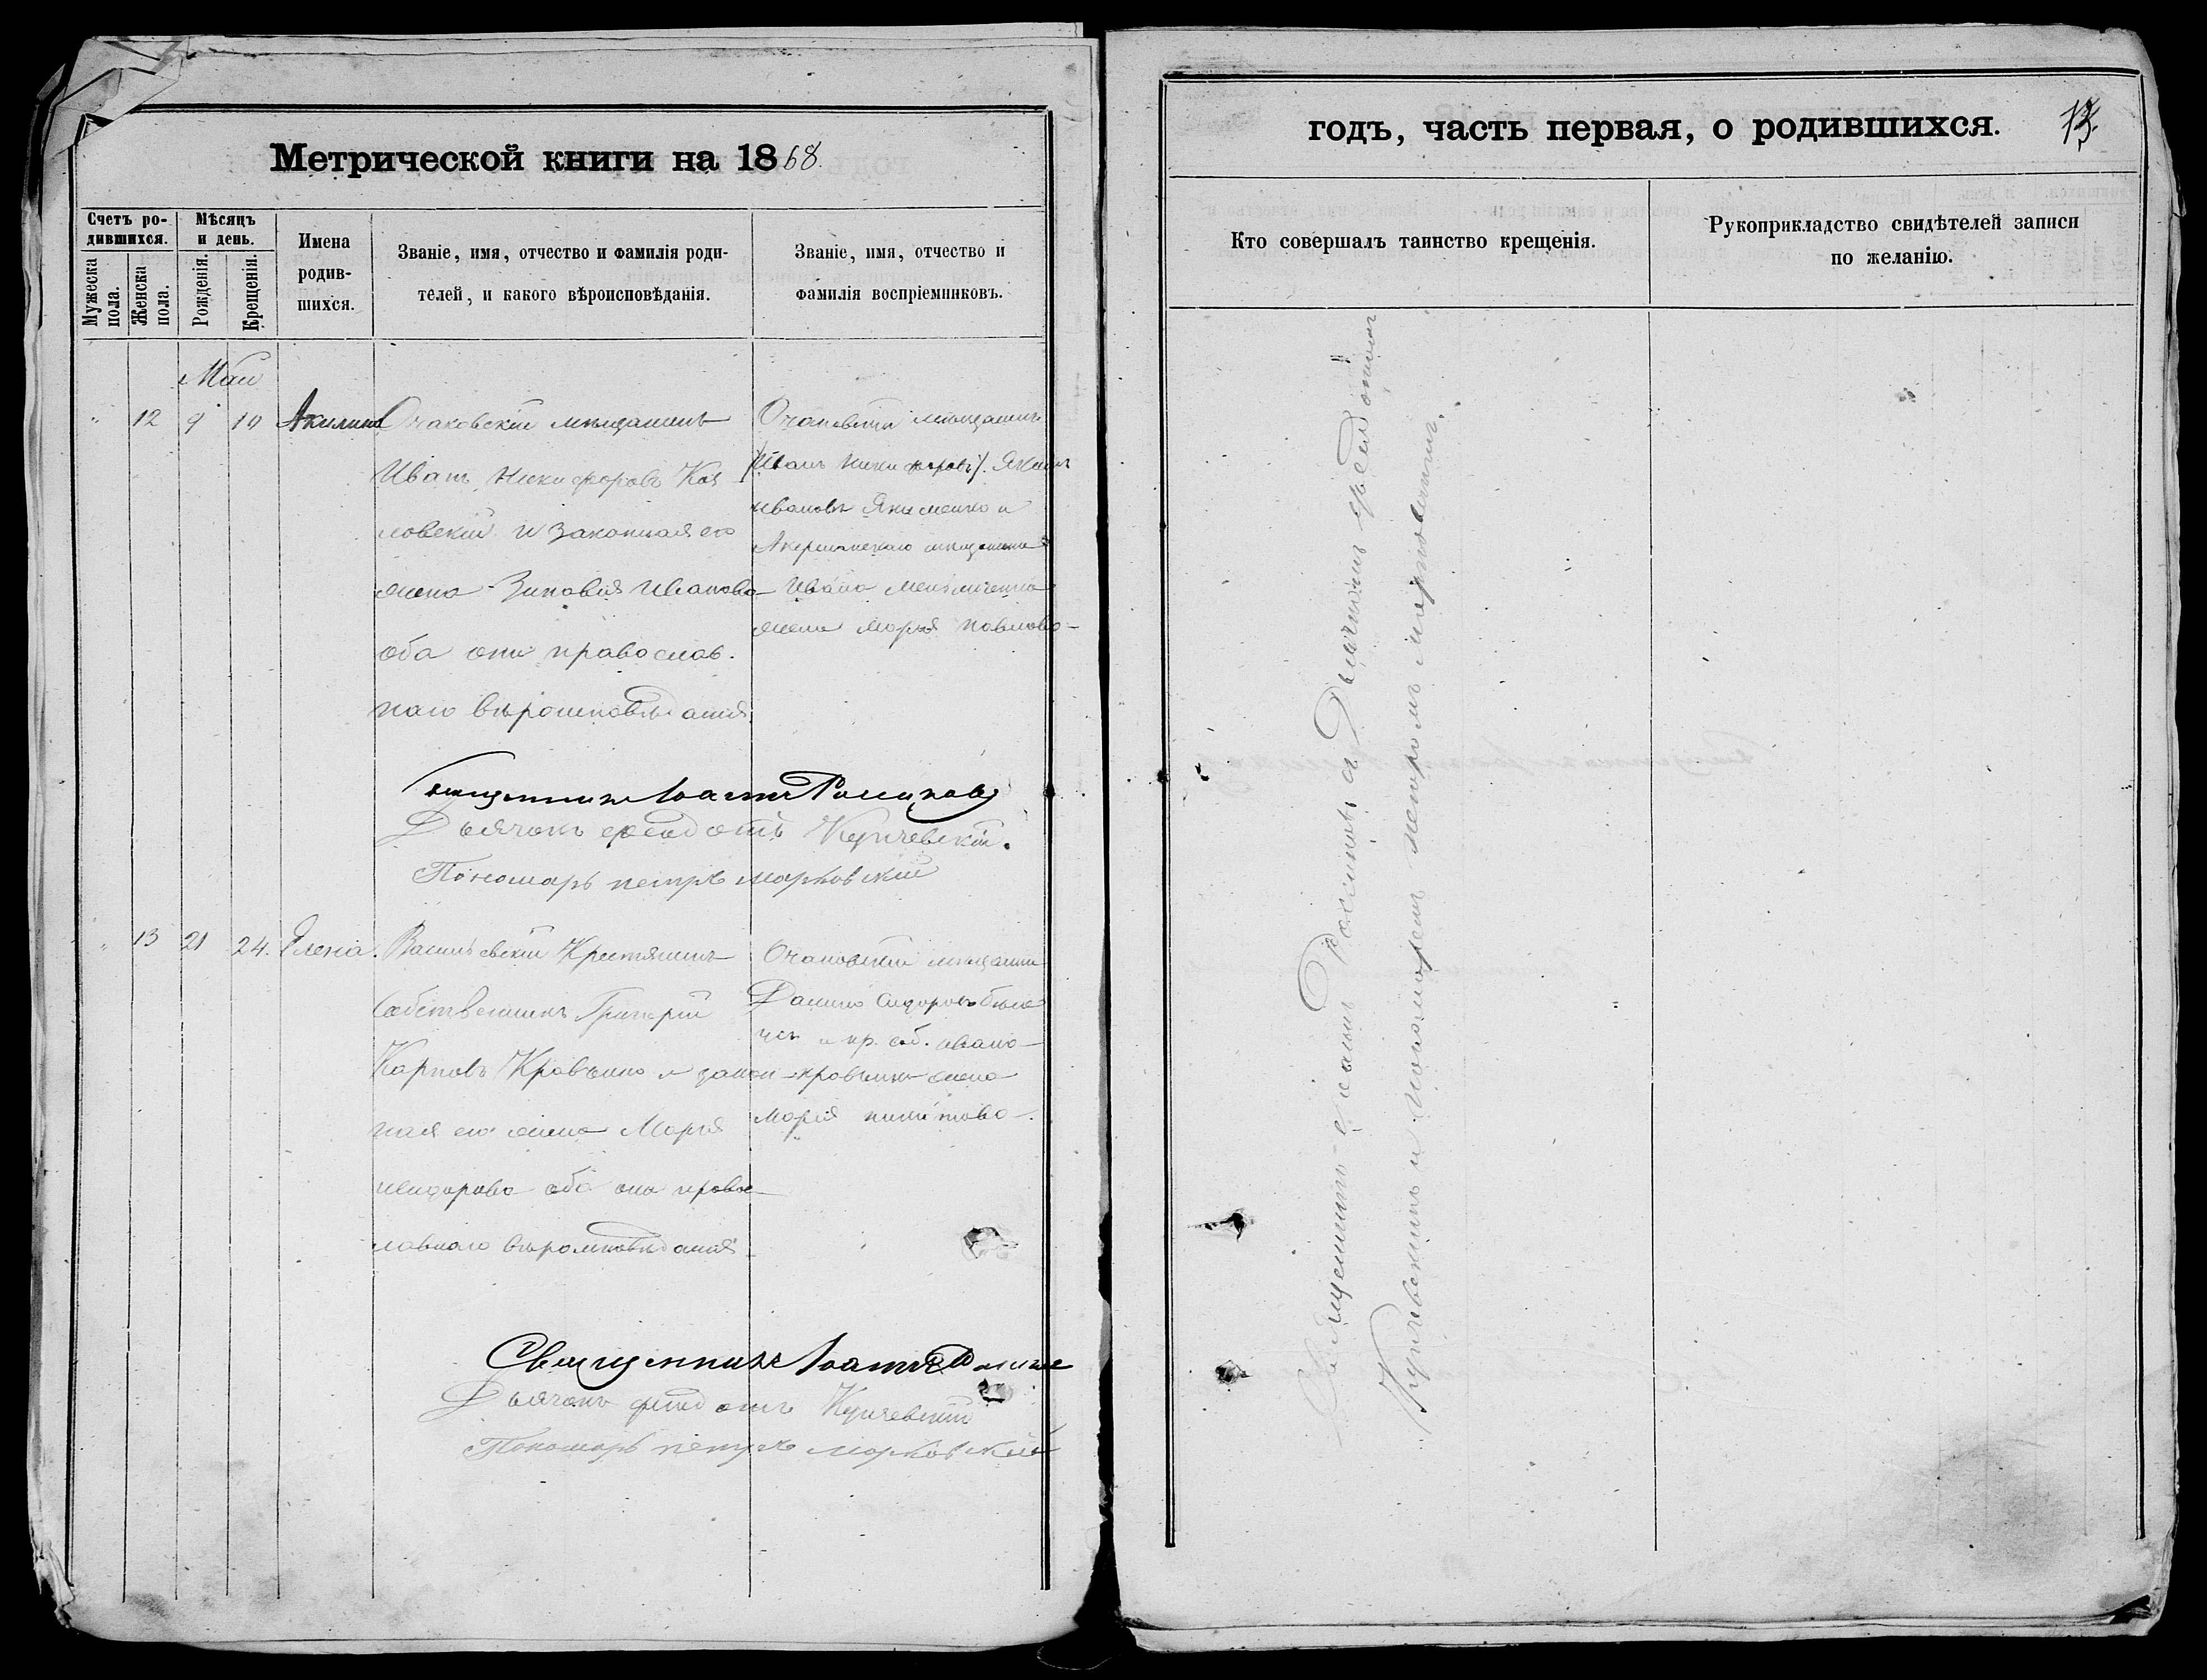 Метрической книги на 1868.
Счетъ родившихся.
Мужеска пола.
Женска пола.
Мѣсяцъ и день.
Рожденія.
Крещенія.
Имена
родив-
шихся.
Званіе, имя, отчество и фамилія роди-
телей, и какого вѣроисповѣданія.
Званіе, имя, отчество и
фамилія воспріемниковъ.
Маи
12 9 10 Акилина
Очаковскій мѣщанинъ
Иванъ Никифоровъ Коз
ловскій и законная его
жена Зиновія Иванова
оба они православ.
наго вѣроисповѣданія
Очаковскій мѣщанинъ
(Иванъ Никифоровъ). Якимъ
Ивановъ Якименко и
Акерманскаго мѣщанина
Ивана
жена Марія Павлова
Священникъ Іоаннъ
Дьячокъ Федотъ Купчевскій.
Пономарь Петръ Марковскій
13 21 24. Елена.
Васильевскій Крестянинъ
Собственникъ Григорій
Карповъ Кравченко и закон
ная его жена Марія
Исидорова оба они правос
лавнаго вѣроисповѣданія
Очаковскій мѣщанинъ
Данило Сидоровъ
и кр. соб. Ивана
Кравченка жена
Марія
Священникъ Іоаннъ
Дьячокъ Федотъ Купчевскій
Пономарь Петръ Марковскій
годъ, часть первая, о родившихся.
Кто совершалъ таинство крещенія.
Рукоприкладство свидѣтелей записи
по желанію.
Священникъ Іоаннъ съ Дьячкомъ Федотомъ
Купчевскимъ и Пономаремъ Петромъ Марковскимъ.